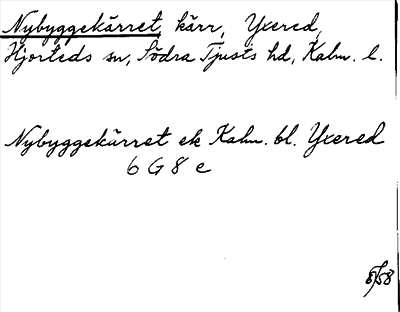 Nybyggekärret, kärr, Yxered,
Hjorteds sn, Södra Tjusts hd, Kalm. l.
Nybyggekärret ek Kalm. bl. Yxered
6 G 8 e